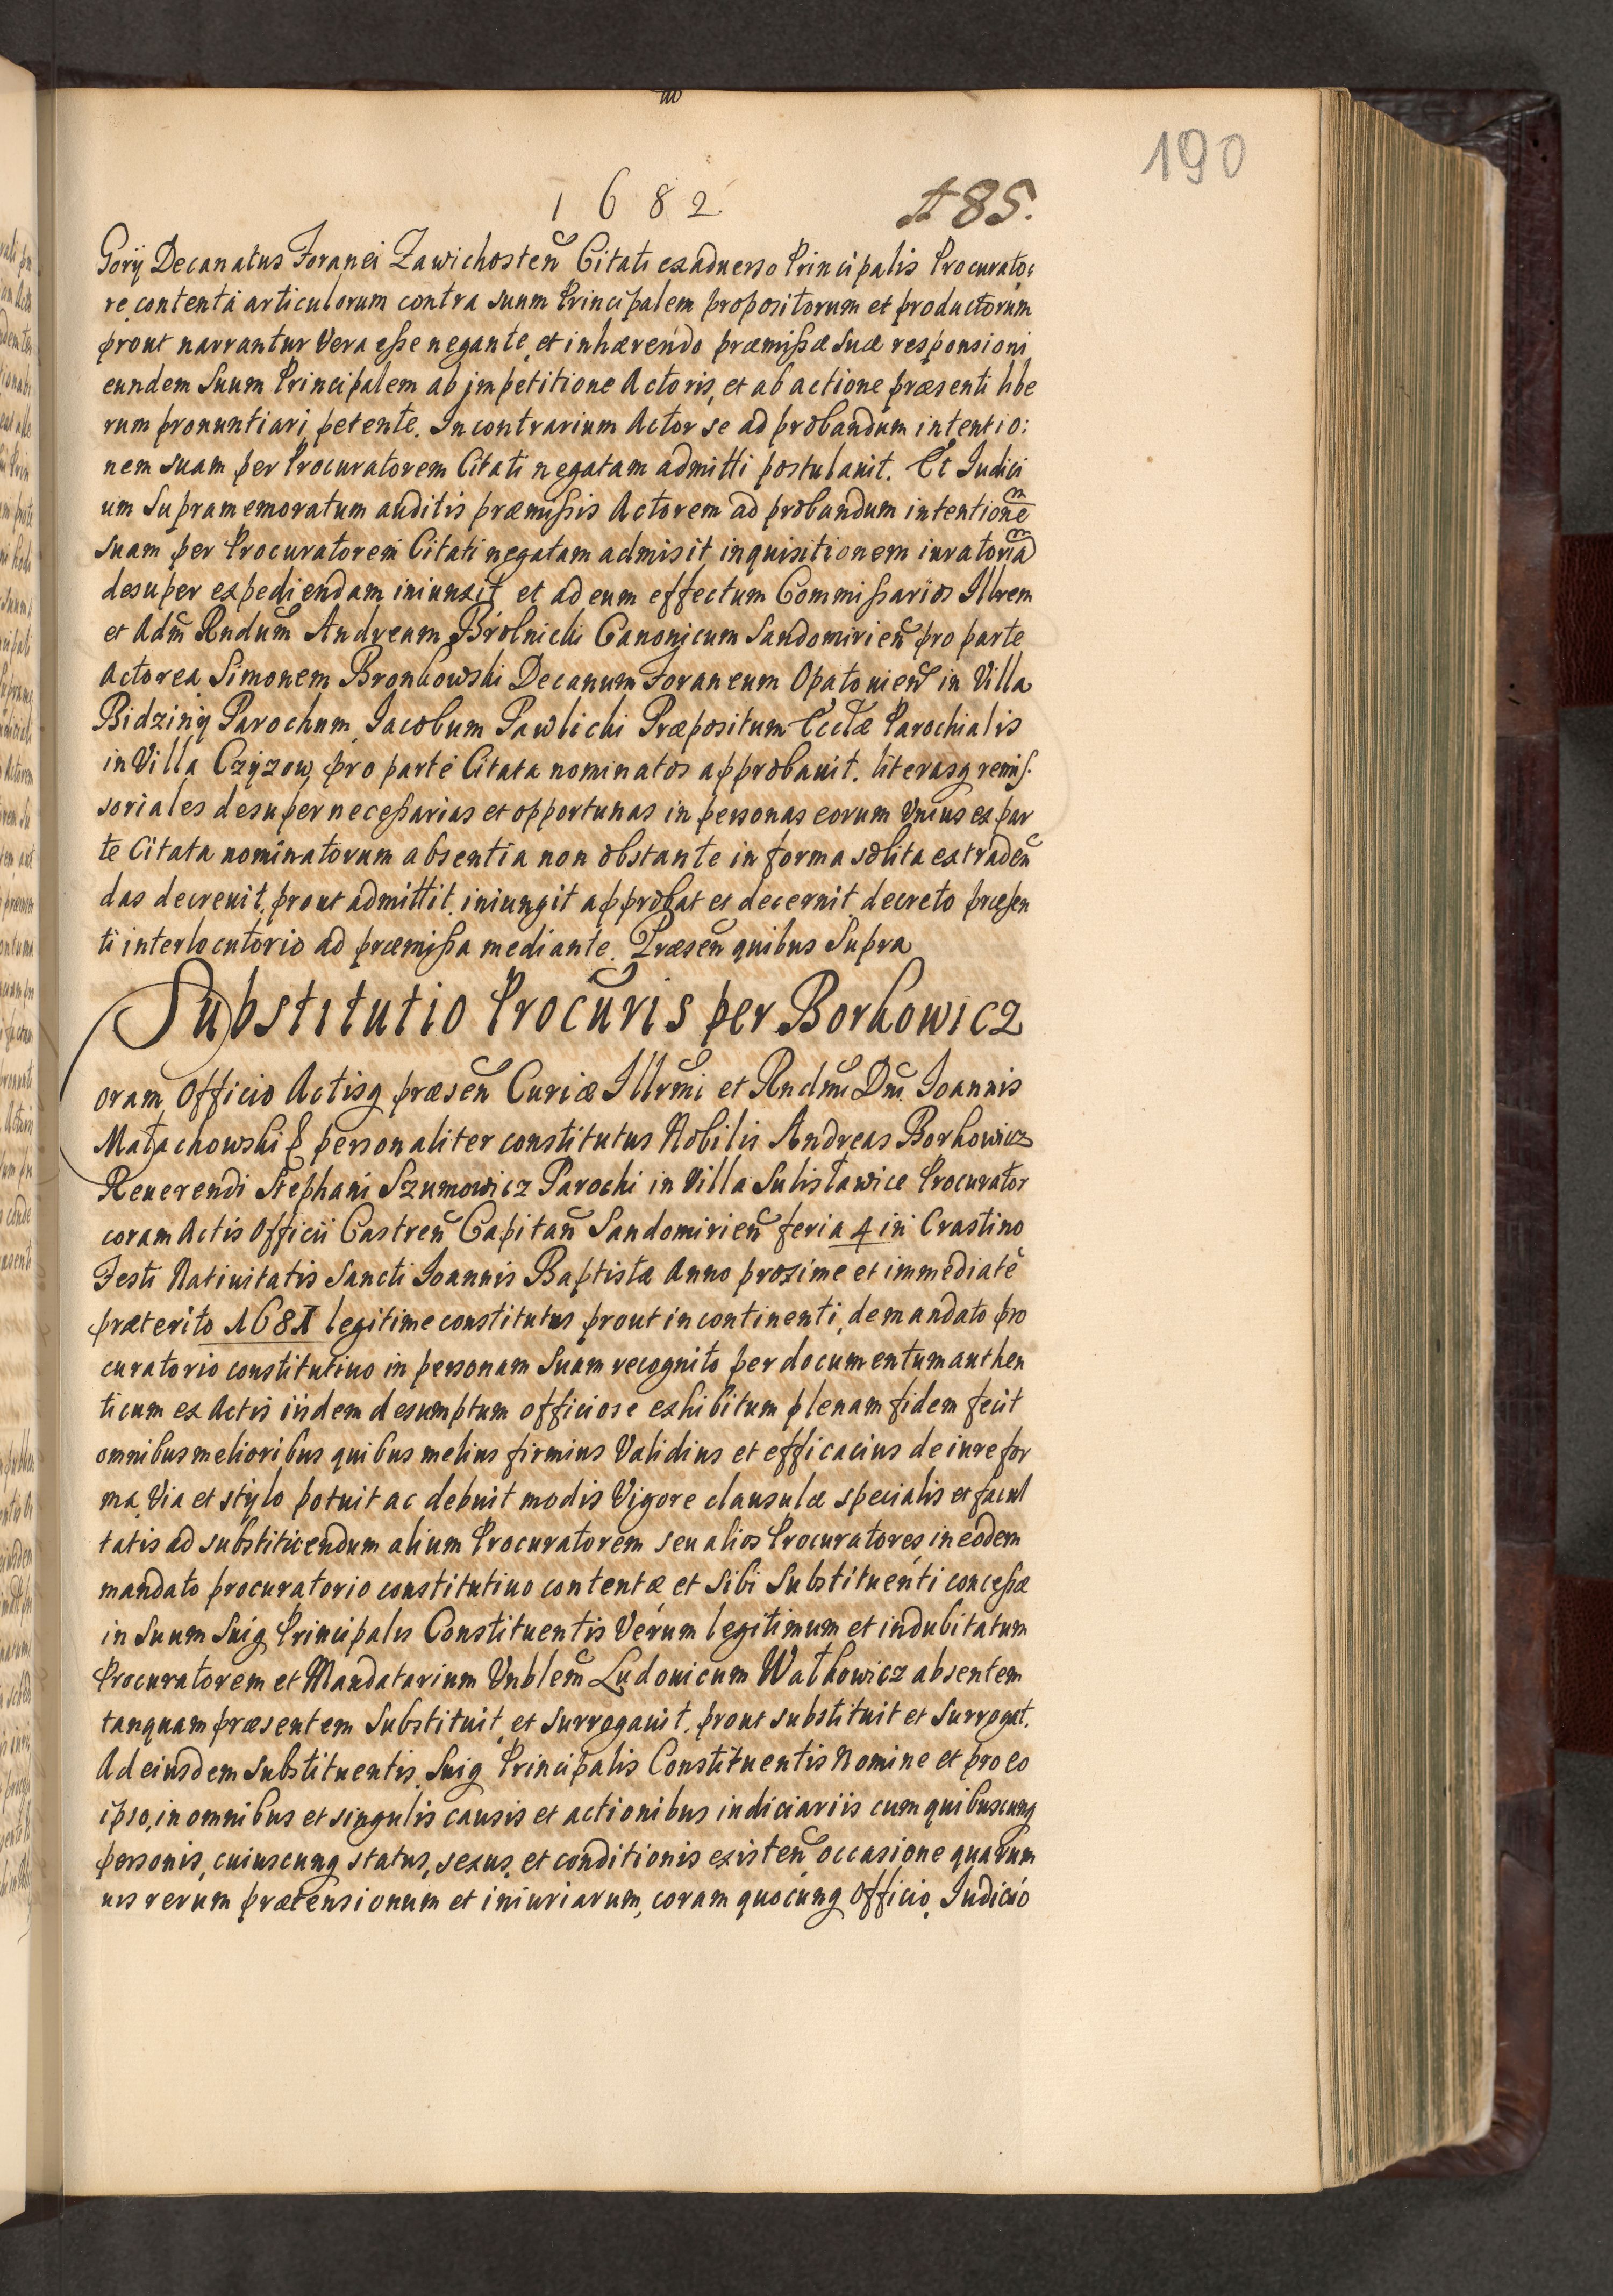 190
1682
185.
Gorÿ Decanatus Foranei Zawichosten̄ Citati ex aduerso Principalis Procurato:
re contenta articulorum contra suum Principalem propositorum et productorum
prout narrantur Vera eße negante, et inhærendo præmißæ Suæ responsioni
eundem Suum Principalem ab jmpetitione Actoris, et ab actione præsenti libe
rum pronuntiari petente. In contrarium Actor se ad probandum intentio:
nem suam per Procuratorem Citati negatam admitti postulauit. Et Judici
um Supramemoratum auditis præmißis Actorem ad probandum intentionem
suam per Procuratorem Citati negatam admisit, inquisitionem iuratoriam
desuper expediendam iniunxit, et ad eum effectum Commißarios Illrem
et Adm̄ Rndum̄ Andream Brolnicki Canonicum Sandomirien̄ pro parte
Actorea Simonem Bronkowski Decanum Foraneum Opatouien̄ in Villa
Bidzinÿ Parochum, Jacobum Pawlicki Præpositum Eccłæ Parochialis
in Villa Czÿzow, pro parte Citata nominatos approbauit. literasq remiß
soriales desuper neceßarias et opportunas in personas eorum Vnius ex par
te Citata nominatorum absentia non obstante in forma solita extraden̄
das decreuit, prout admittit, iniungit approbat et decernit decreto præsen
ti interlocutorio ad præmißa mediante. Præsen̄ quibus Supra
Substitutio Procuris per Borkowicz
Coram Officio Actisq præsen̄ Curiæ Illrmi et Rndmi Dni Joannis
Małachowski & personaliter constitutus Nobilis Andreas Borkowicz
Reuerendi Stephani Szumowicz Parochi in Villa Sulisławice Procurator
coram Actis Officii Castren̄ Capitan̄ Sandomirien̄ feria 4 in Crastino
Festi Natiuitatis Sancti Joannis Baptistæ Anno proxime et immediatè
præterito 1681 legitime constitutus prout in continenti, de mandato pro
curatorio constitutiuo in personam Suam recognito per documentum authen
ticum ex Actis iisdem desumptum officiose exhibitum plenam fidem fecit
omnibus melioribus quibus melius firmius Validius et efficacius de iure for
ma, Via et stylo potuit ac debuit modis Vigore clausulæ specialis et facul
tatis ad substituendum alium Procuratorem seu alios Procuratores in eodem
mandato procuratorio constitutiuo contentæ et Sibi Substituenti conceßæ
in Suum Suiq Principalis Constituentis Verum legitimum et indubitatum
Procuratorem et Mandatarium Vnblem̄ Ludouicum Wałkowicz absentem
tanquam præsentem Substituit, et Surrogauit, prout substituit et Surrogat.
Ad eiusdem Substituentis, Suiq Principalis Constituentis Nomine et pro eo
ipso, in omnibus et singulis causis et actionibus iudiciariis cum quibuscunq
personis, cuiuscunq status, sexus, et conditionis existen̄ occasione quarum
uis rerum prætensionum et iniuriarum, coram quocunq Officio, Judicio